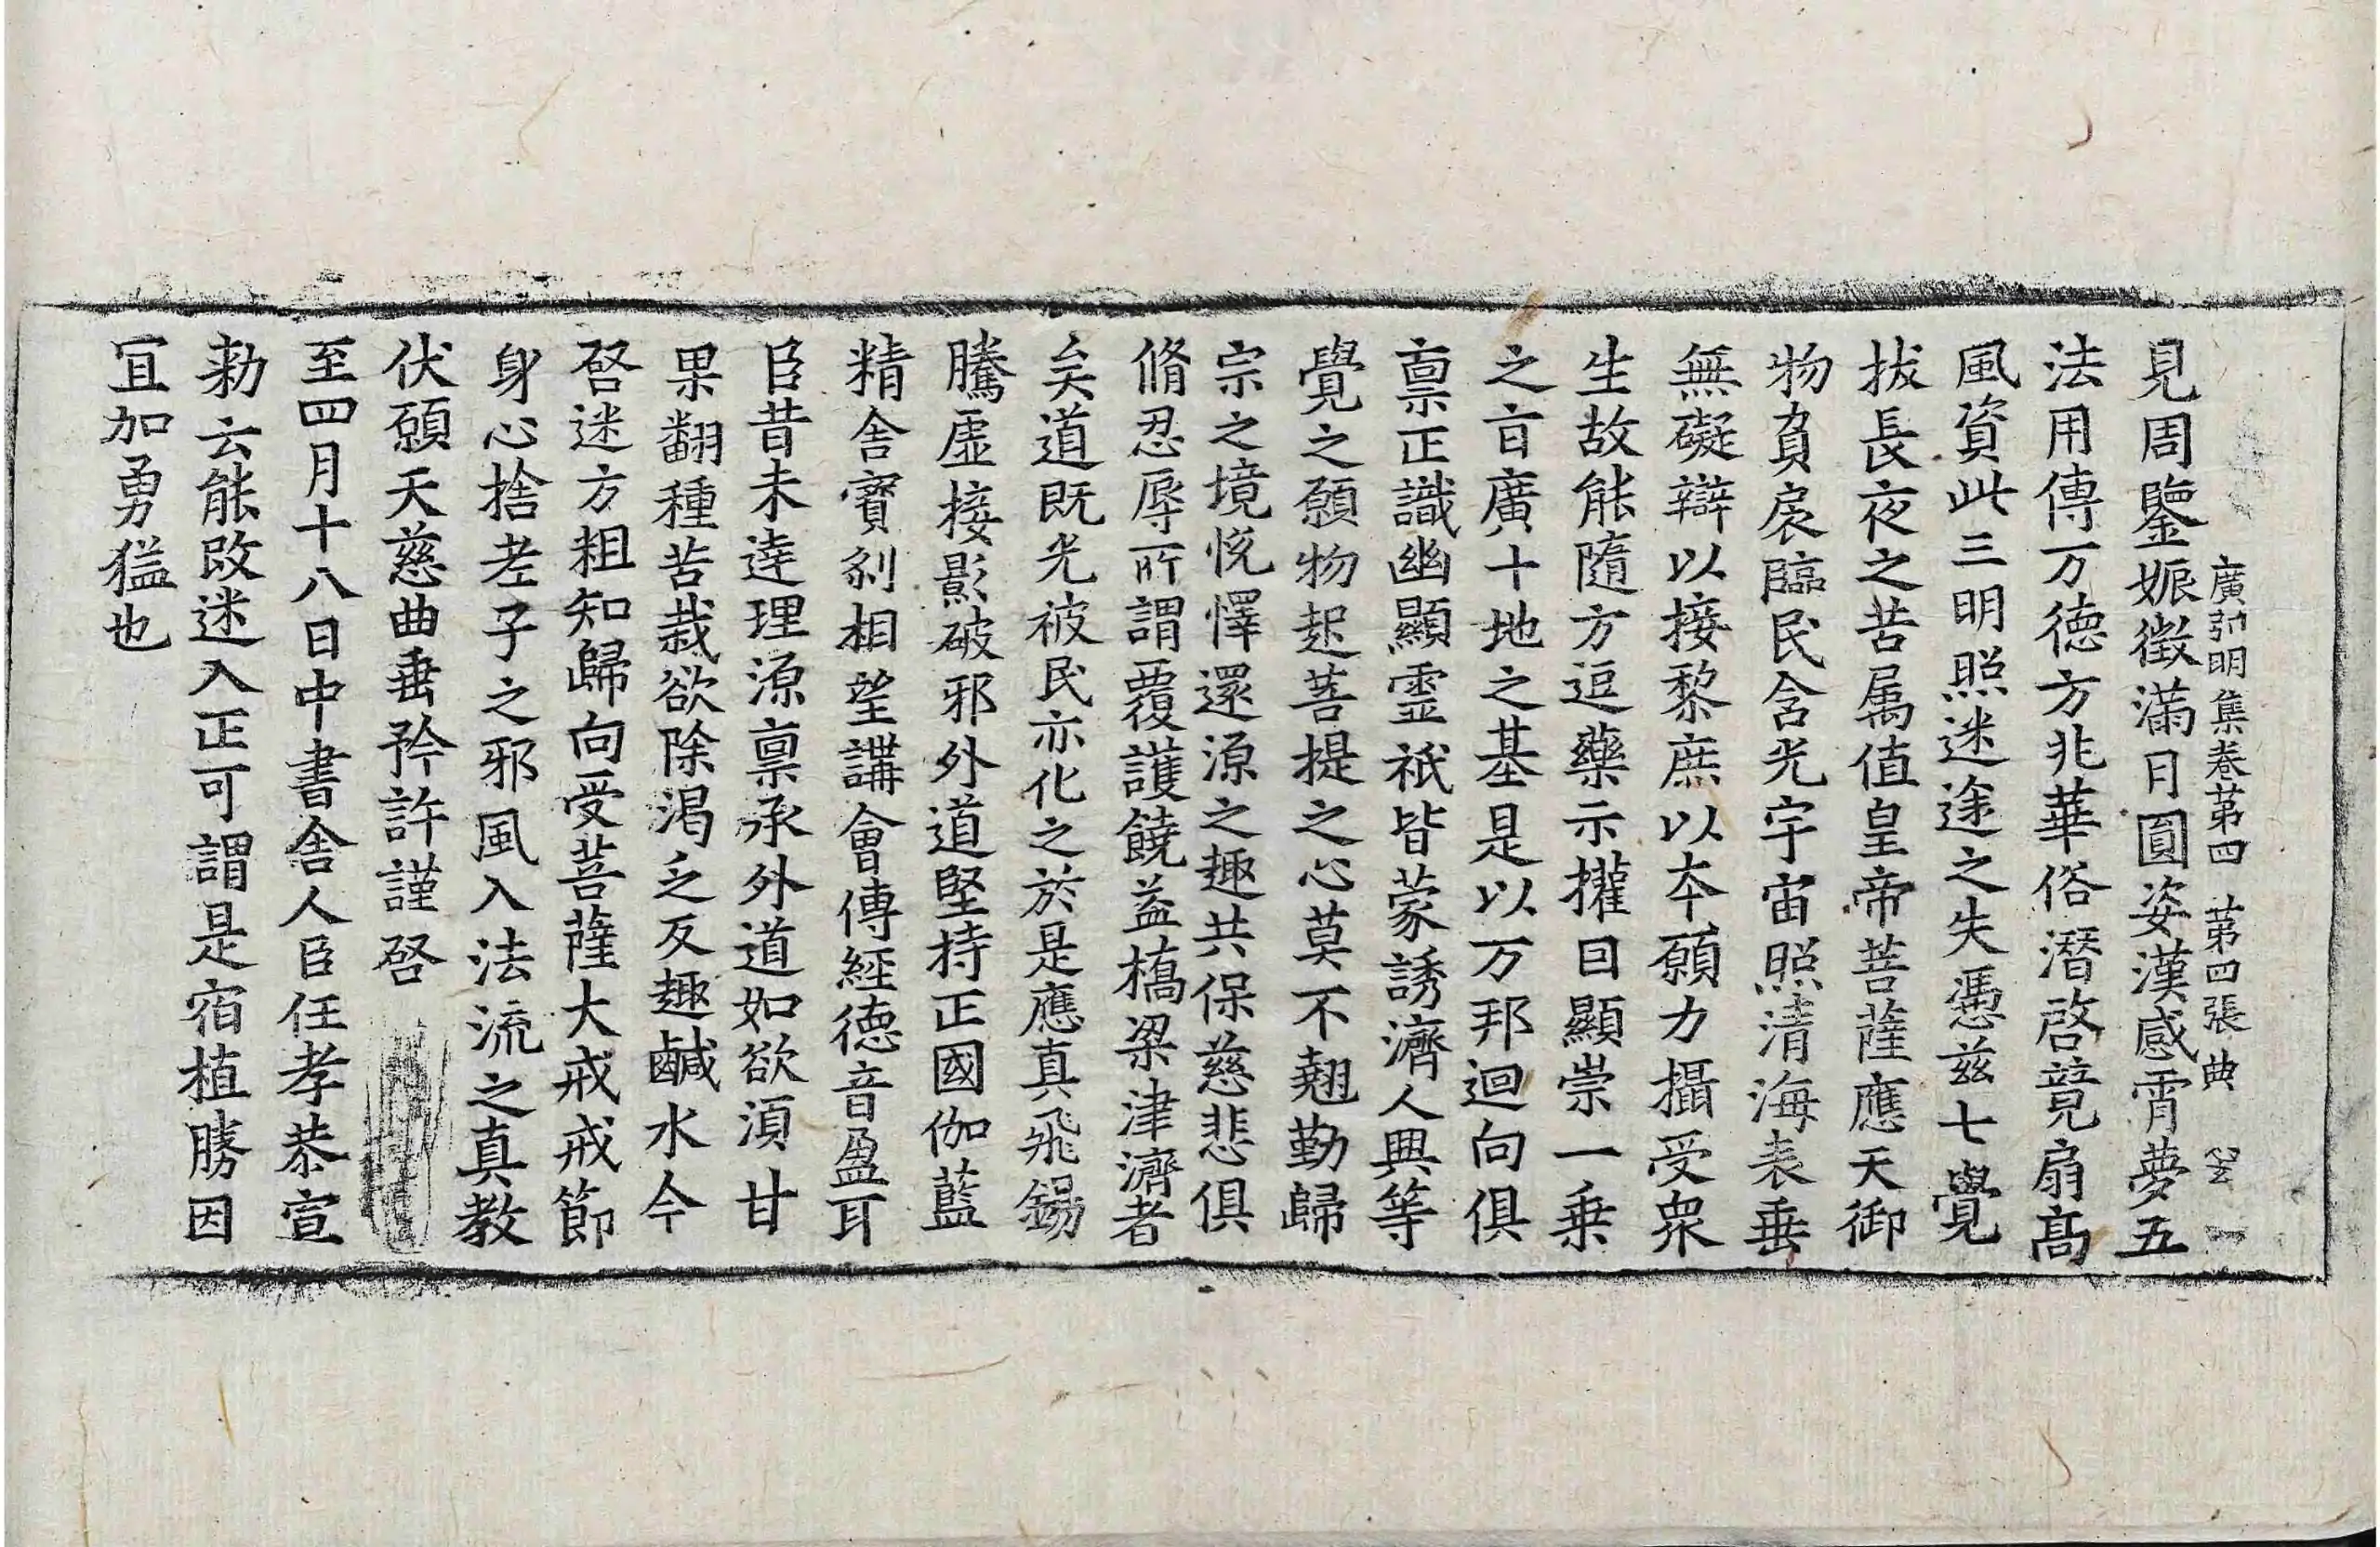 廣弘明集卷苐四 苐四張 典
見周鑒娠徴滿月圓姿漢感霄夢五
法用傳万徳方兆華俗潛啓竟扇髙
風資此三明照迷途之失憑兹七覺
拔長夜之苦属值皇帝菩薩應天御
物負扆臨民含光宇宙照清海表垂
無礙辯以接黎庶以夲願力攝受衆
生故能隨方逗藥示攉曰顯崇一乗
之㫖廣十地之基是以万邦迴向俱
禀正識幽顯霊祇皆蒙誘濟人興等
覺之願物起菩提之心莫不翹勤歸
宗之境恱懌還源之趣共保慈悲俱
脩忍辱所謂覆護饒益橋梁津濟者
矣道既光被民亦化之於是應真飛錫
騰虚接影破邪外道堅持正國伽藍
精舍寶刹相望講會傳經徳音盈耳
臣昔未達理源禀承外道如欲湏甘
果翻種苦栽欲除渇乏反趣鹹水今
啓迷方粗知歸向受菩薩大戒戒節
身心捨老子之邪風入法流之真教
伏願天慈曲垂矜許謹啓
至四月十八日中書舍人臣任孝恭宣
勑云能改迷入正可謂是宿植勝因
冝加勇猛也